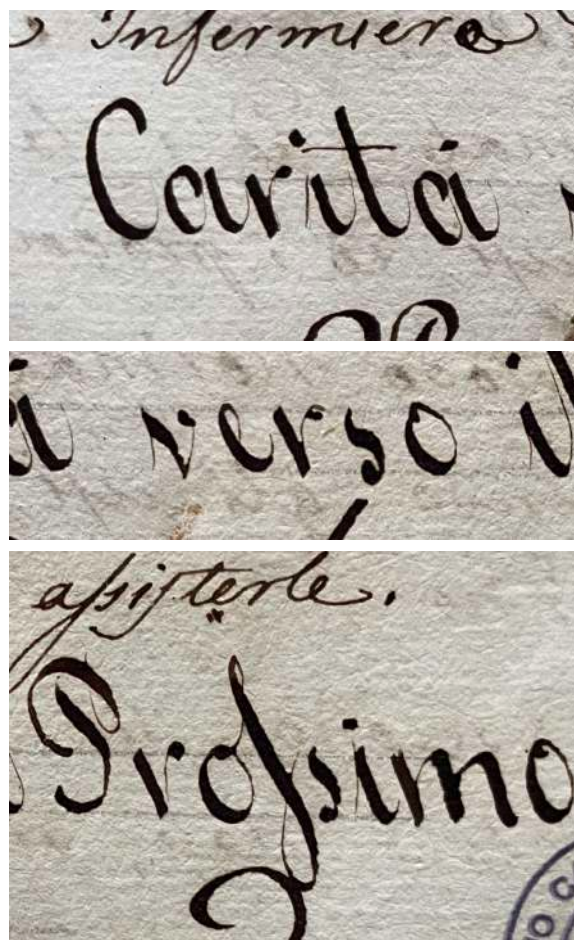 Infermiera
Caritá
verso il
assisterle.
Prossimo